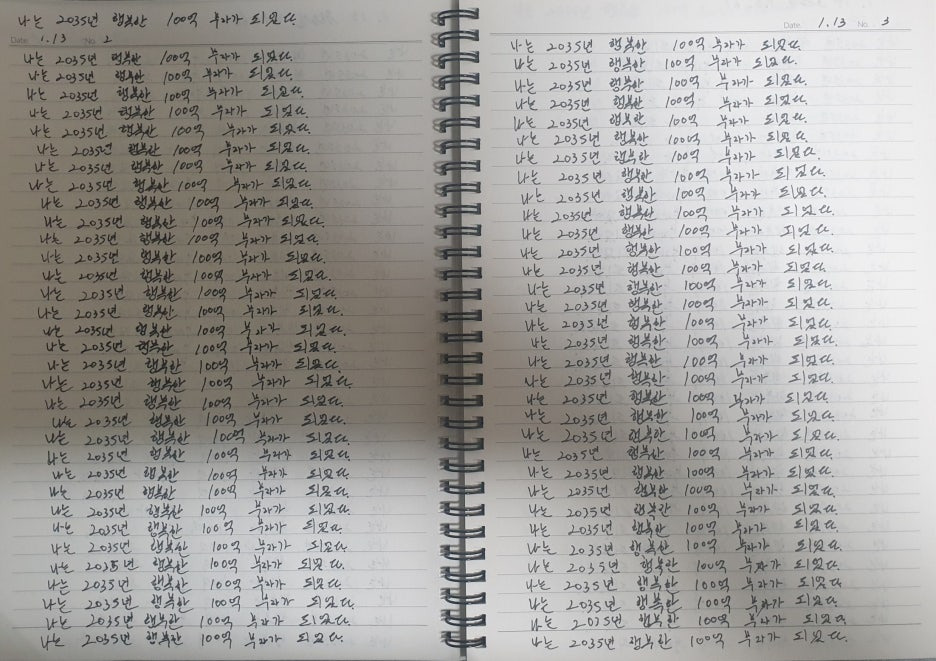 나는 2035년 행복한 100억 부자가 되었다.
Date. 1.13 No. 2
나는 2035년 행복한 100억 부자가 되었다.
나는 2035년 행복한 100억 부자가 되었다.
나는 2035년 행복한 100억 부자가 되었다.
나는 2035년 행복한 100억 부자가 되었다.
나는 2035년 행복한 100억 부자가 되었다.
나는 2035년 행복한 100억 부자가 되었다.
나는 2035년 행복한 100억 부자가 되었다.
나는 2035년 행복한 100억 부자가 되었다.
나는 2035년 행복한 100억 부자가 되었다.
나는 2035년 행복한 100억 부자가 되었다.
나는 2035년 행복한 100억 부자가 되었다.
나는 2035년 행복한 100억 부자가 되었다.
나는 2035년 행복한 100억 부자가 되었다.
나는 2035년 행복한 100억 부자가 되었다.
나는 2035년 행복한 100억 부자가 되었다.
나는 2035년 행복한 100억 부자가 되었다.
나는 2035년 행복한 100억 부자가 되었다.
나는 2035년 행복한 100억 부자가 되었다.
나는 2035년 행복한 100억 부자가 되었다.
나는 2035년 행복한 100억 부자가 되었다.
나는 2035년 행복한 100억 부자가 되었다.
나는 2035년 행복한 100억 부자가 되었다.
나는 2035년 행복한 100억 부자가 되었다.
나는 2035년 행복한 100억 부자가 되었다.
나는 2035년 행복한 100억 부자가 되었다.
나는 2035년 행복한 100억 부자가 되었다.
나는 2035년 행복한 100억 부자가 되었다.
나는 2035년 행복한 100억 부자가 되었다.
나는 2035년 행복한 100억 부자가 되었다.
나는 2035년 행복한 100억 부자가 되었다.
나는 2035년 행복한 100억 부자가 되었다.
나는 2035년 행복한 100억 부자가 되었다.
나는 2035년 행복한 100억 부자가 되었다.
Date. 1.13 No. 3
나는 2035년 행복한 100억 부자가 되었다.
나는 2035년 행복한 100억 부자가 되었다.
나는 2035년 행복한 100억 부자가 되었다.
나는 2035년 행복한 100억 부자가 되었다.
나는 2035년 행복한 100억 부자가 되었다.
나는 2035년 행복한 100억 부자가 되었다.
나는 2035년 행복한 100억 부자가 되었다.
나는 2035년 행복한 100억 부자가 되었다.
나는 2035년 행복한 100억 부자가 되었다.
나는 2035년 행복한 100억 부자가 되었다.
나는 2035년 행복한 100억 부자가 되었다.
나는 2035년 행복한 100억 부자가 되었다.
나는 2035년 행복한 100억 부자가 되었다.
나는 2035년 행복한 100억 부자가 되었다.
나는 2035년 행복한 100억 부자가 되었다.
나는 2035년 행복한 100억 부자가 되었다.
나는 2035년 행복한 100억 부자가 되었다.
나는 2035년 행복한 100억 부자가 되었다.
나는 2035년 행복한 100억 부자가 되었다.
나는 2035년 행복한 100억 부자가 되었다.
나는 2035년 행복한 100억 부자가 되었다.
나는 2035년 행복한 100억 부자가 되었다.
나는 2035년 행복한 100억 부자가 되었다.
나는 2035년 행복한 100억 부자가 되었다.
나는 2035년 행복한 100억 부자가 되었다.
나는 2035년 행복한 100억 부자가 되었다.
나는 2035년 행복한 100억 부자가 되었다.
나는 2035년 행복한 100억 부자가 되었다.
나는 2035년 행복한 100억 부자가 되었다.
나는 2035년 행복한 100억 부자가 되었다.
나는 2035년 행복한 100억 부자가 되었다.
나는 2035년 행복한 100억 부자가 되었다.
나는 2035년 행복한 100억 부자가 되었다.